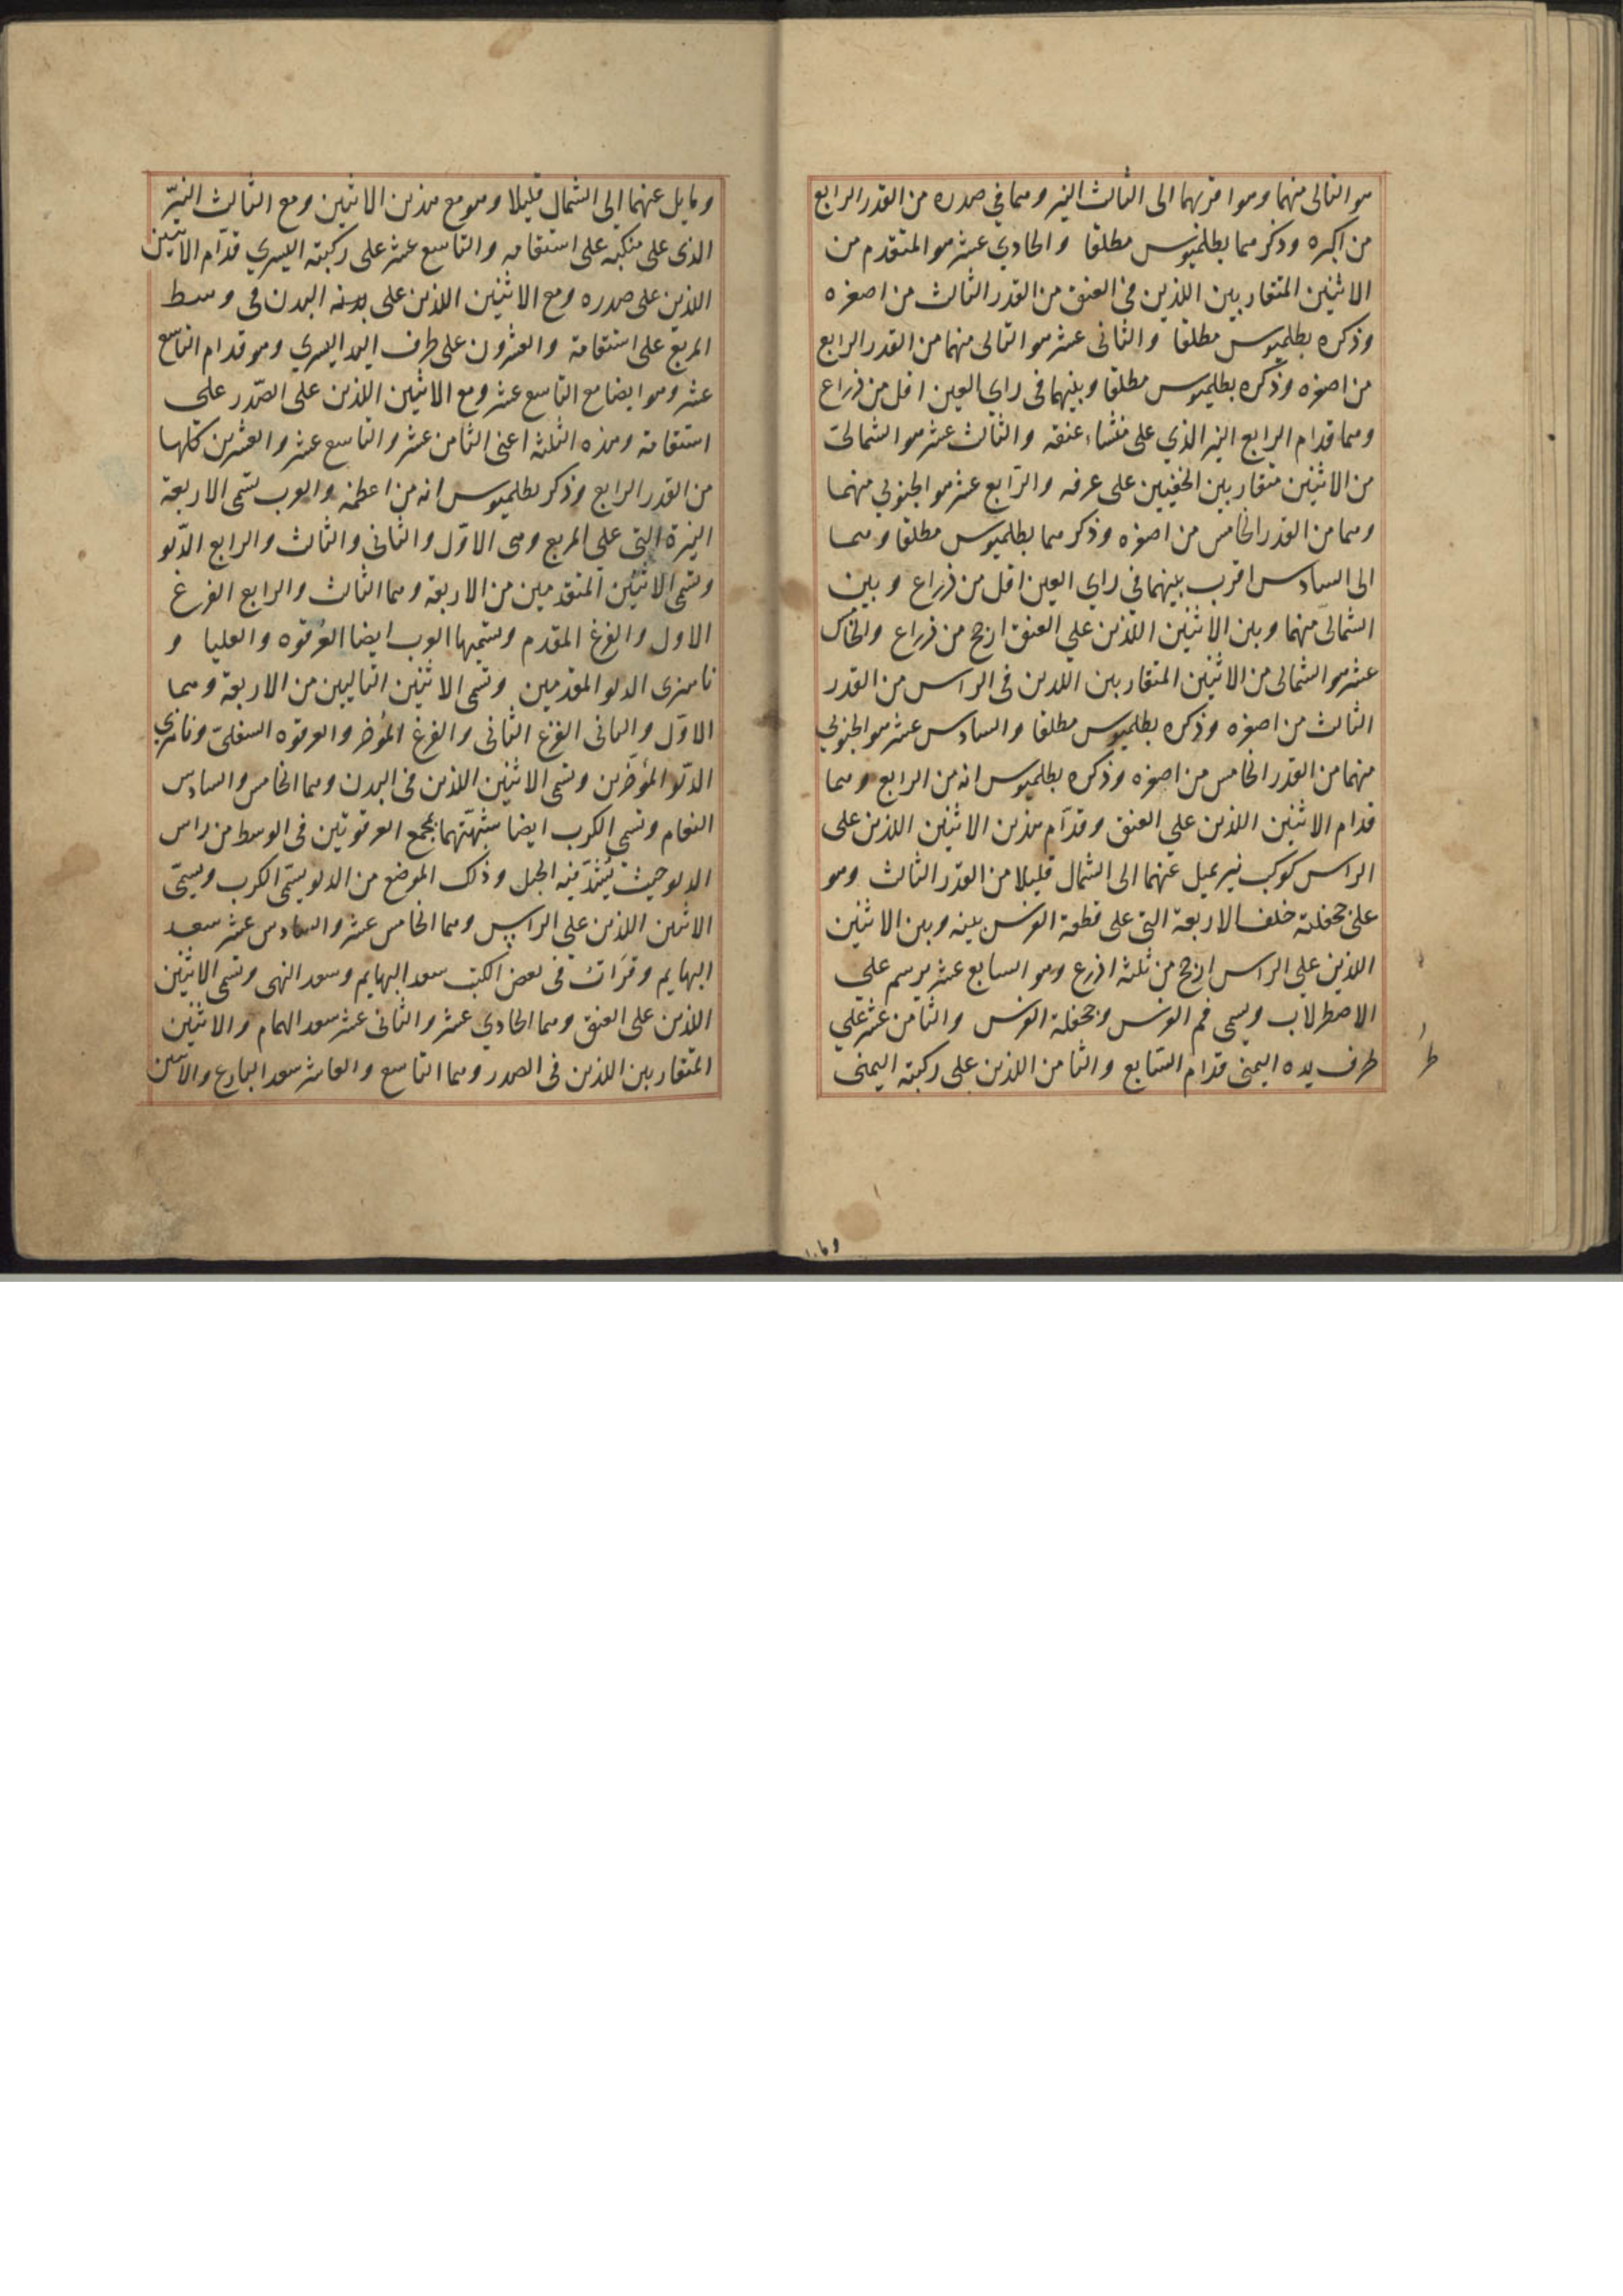 هو التالى منهما وهو اقربهما الى الثالث النير وهما في صدره من القدر الرابع
من اكبره وذكرهما بطلميوس مطلقا والحادي عشر هو المتقدم من
الاثنين المتقاربين اللذين فى العنق من القدر الثالث من اصغره
وذكره بطلميوس مطلقا والثانى عشر هو التالى منهما من القدر الرابع
من اصغره وذكره بطلميوس مطلقا وبينهما فى راي العين اقل من ذراع
وهما قدام الرابع النير الذي على منشاء عنقه والثالث عشر هو الشمالى
من الاثنين متقاربين الخفيين على عرفه والرابع عشر هو الجنوبي منهما
وهما من القدر الخامس من اصغره وذكرهما بطلميوس مطلقا وهما
الى السادس اقرب بينهما في راي العين اقل من ذراع وبين
الشمالى منهما وبين الاثنين اللذين علي العنق ارجح من ذراع والخامس
عشر هو الشمالى من الاثنين المتقاربين اللذين فى الراس من القدر
الثالث من اصغره وذكره بطلميوس مطلقا والسادس عشر هو الجنوبي
منهما من القدر الخامس من اصغره وذكره بطلميوس انه من الرابع وهما
قدام الاثنين اللذين علي العنق وقدّام هذين الاثنين اللذين على
الراس كوكب نير يميل عنهما الى الشمال قليلا من القدر الثالث وهو
على جحفلته خلف الاربعة التى على قطعة الفرس بينه وبين الاثنين
اللذين علي الراس ارجح من ثلثة اذرع وهو السابع عشر يرسم علي
الاصطرلاب ويسمى فم الفرس وجحفلة الفرس والثامن عشر علي
طرف يده اليمنى قدام السّابع والثامن اللذين على ركبته اليمنى
ومايل عنهما الي الشمال قليلا وهو مع هذين الاثنين ومع الثالث النيّر
الذى على منكبه على استقامه والتاسع عشر على ركبته اليسري قدّام الاثنين
اللذين على صدره ومع الاثنين اللذين على بدنه البدن فى وسط
المربع على استقامة والعشرون على طرف اليد اليسري وهو قدام التاسع
عشر وهو ايضا مع التاسع عشر ومع الاثنين اللذين على الصّدر على
استقامة وهذه الثلثة اعنى الثامن عشر والتاسع عشر والعشرين كلها
من القدر الرابع وذكر بطلميوس انه من اعظمه والعرب تسمى الاربعة
النيرة التى علي المربع وهى الاوّل والثانى والثالث والرابع الدّلو
وتسمى الاثنين المتقدمين من الاربعة وهما الثالث والرابع الفرغ
الاول والفرغ المقدم وتسميها العرب ايضا العرقوه والعليا و
ناهزى الدلو المقدمين وتسمى الاثنين التاليين من الاربعة وهما
الاوّل والثانى الفرغ الثانى والفرغ المؤخر والعرقوه السفلى وناهزي
الدّلو المؤخّرين وتسمى الاثنين اللذين فى البدن وهما الخامس والسادس
النعام وتسمى الكرب ايضا شبّهتهما بمجمع العرقوتين فى الوسط من راس
الدلو حيث يشدّ فيه الحبل وذلك الموضع من الدلو يسمّى الكرب ويسمّى
الاثنين اللذين علي الراس وهما الخامس عشر والسادس عشر سعد
البهايم وقرَات فى بعض الكتب سعد البهايم وسعد النهى وتسمى الاثنين
اللذين على العنق وهما الحادي عشر والثانى عشر سعد الهمام والاثنين
المتقاربين اللذين فى الصدر وهما التاسع والعاشر سعد البارع والاثنين